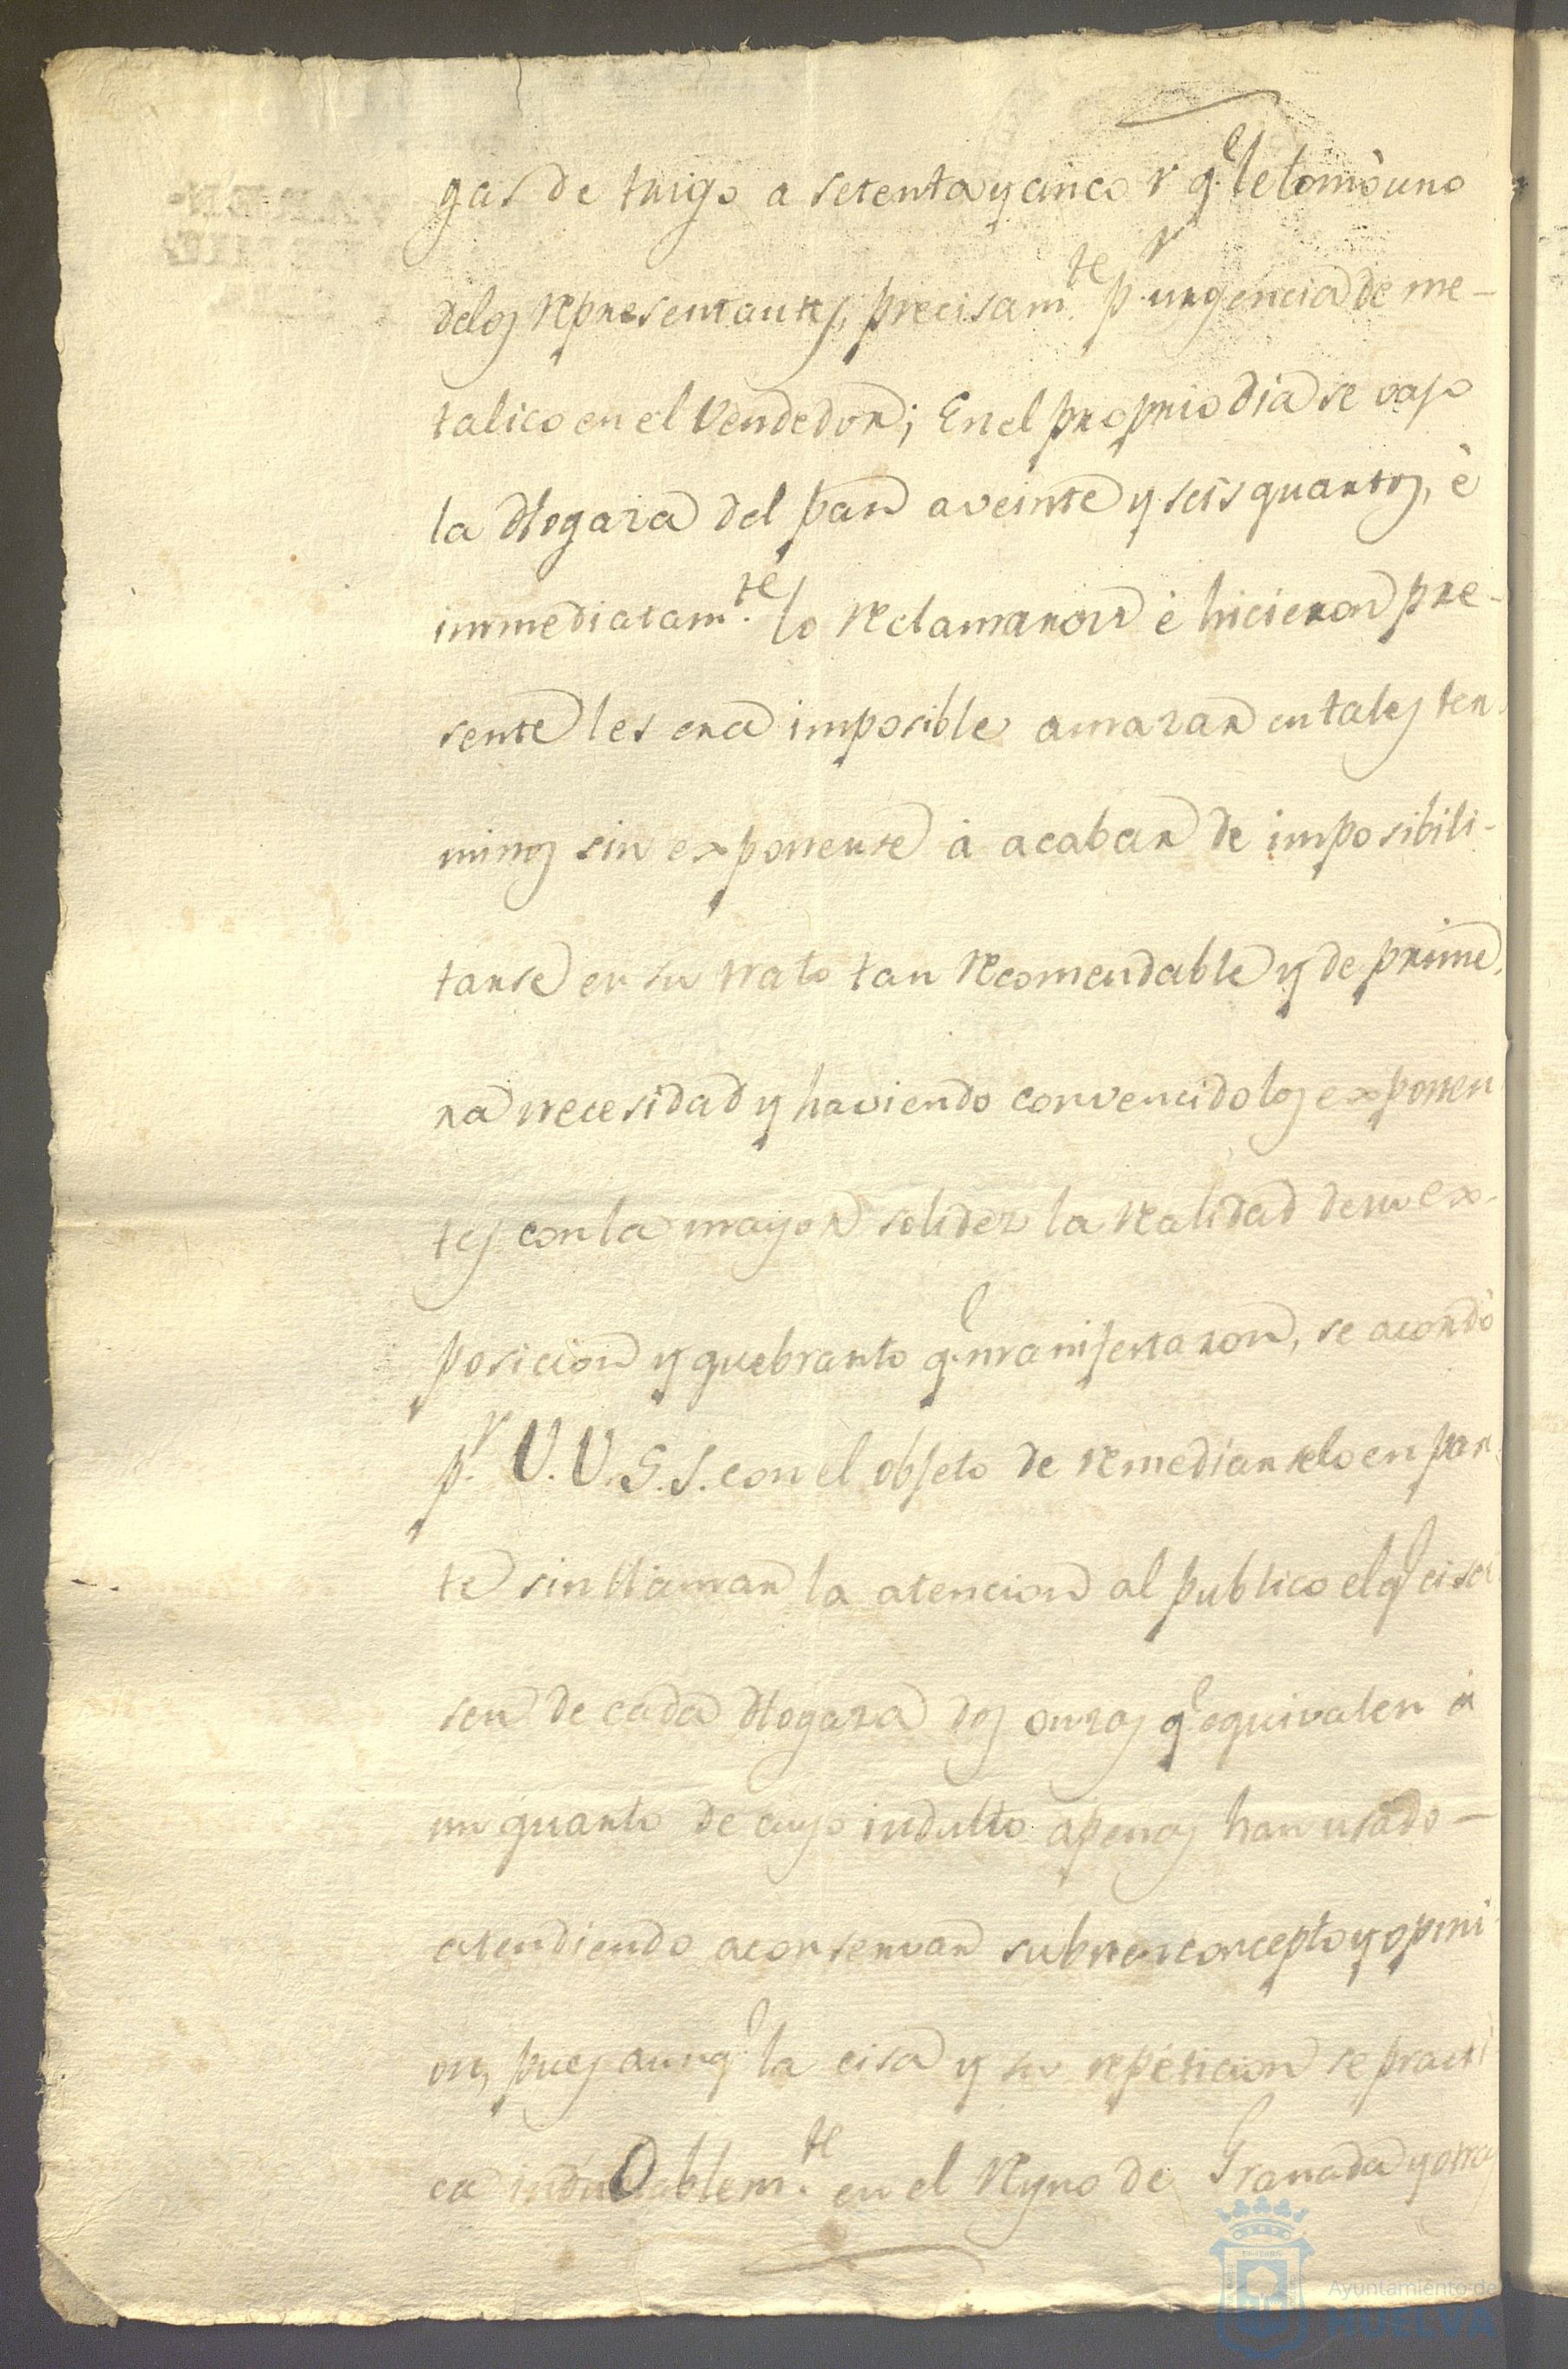 gas de trigo a setenta y cinco r.^s q.^e le tomò uno
delos representantes, precisam.^te p.^r urgencia de me-
talico en el Vendedor; En el proprio dia se vajo
la Hogaza del pan a veinte y seis quartos, è
immediatam.^te lo reclamaron è hicieron pre-
sente les era imposible amazar en tales ter-
minos sin exponerse à acabar de imposibili-
tarse en su trato tan recomendable y de prime-
ra necesidad y haviendo convencido los exponen
tes con la mayor solidez la realidad de su ex-
posicion y quebranto q.^e manifestaron, se acordò
p.^r V.V.S.S. con el objeto de remediarselo en par-
te sin llamar la atencion al publico el q.^e cisa-
sen de cada Hogaza dos onzas q.^e equivalen à
un quarto de cuyo indulto apenas han usado-
atendiendo aconservar subuen concepto y opini
on, pues aunq.^e la cisa y su repeticion se practi
ca indudablem.^te en el Reyno de Granada y otros
Ayuntamiento de
HUELVA